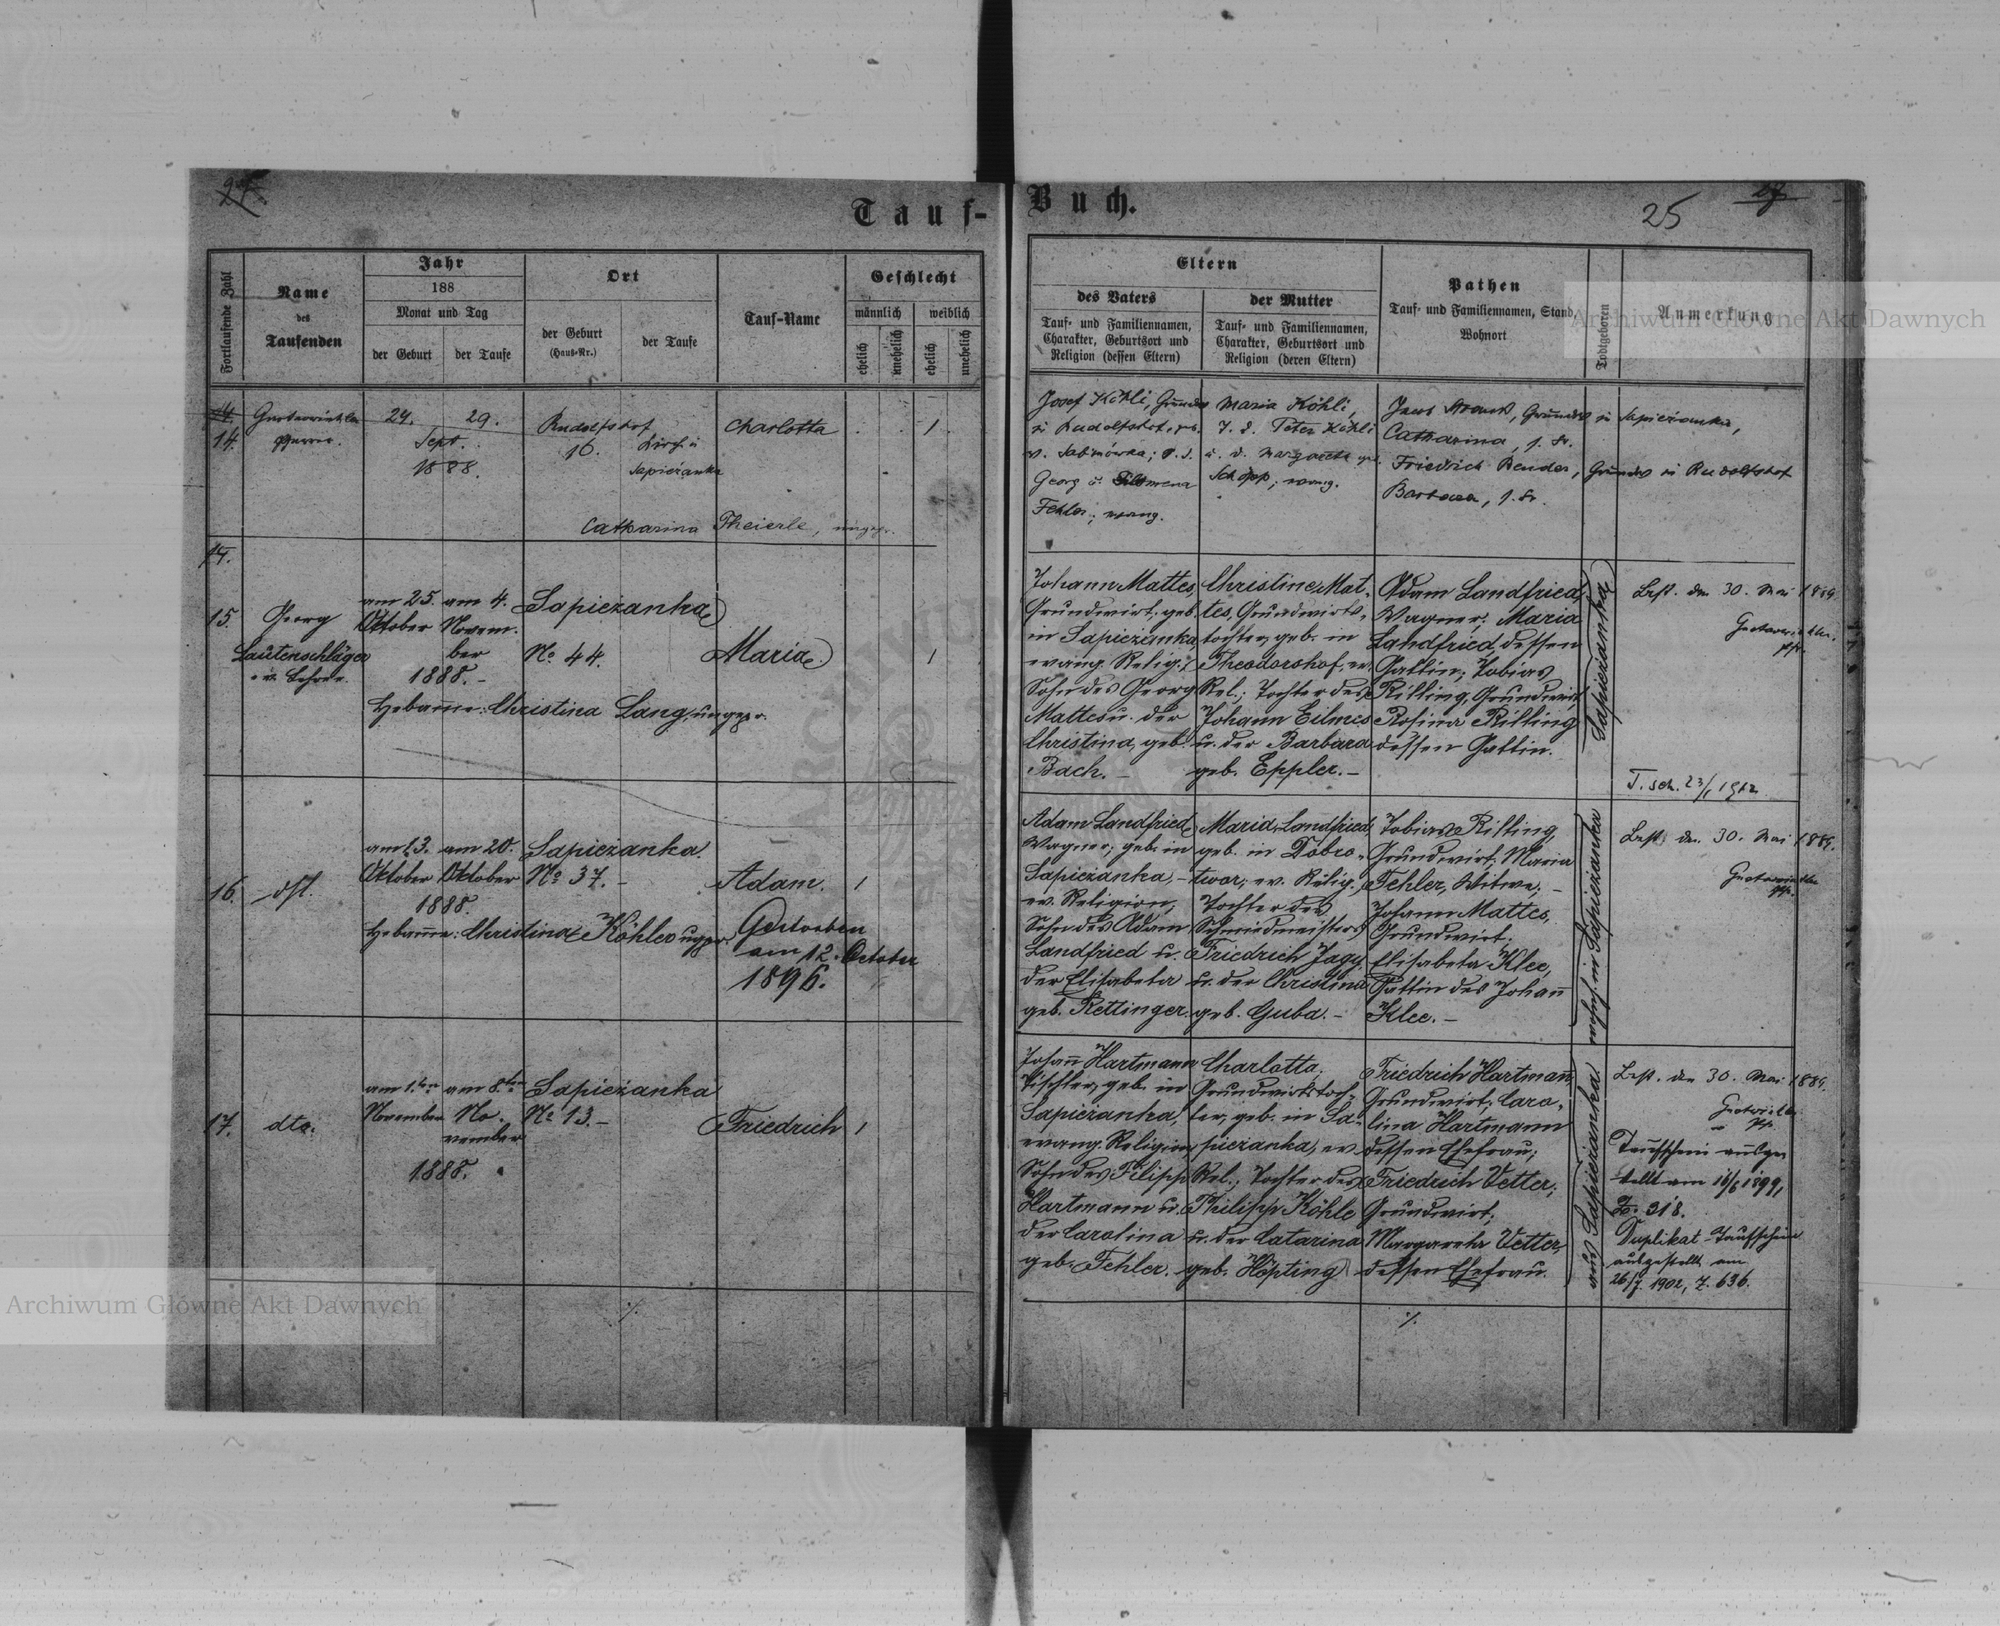 Tauf-
Buch.
25
27
Fortlaufende Zahl
Name
des
Taufenden
Jahr
188
Monat und Tag
der Geburt
der Taufe
Ort
der Geburt
(Haus-Nr.)
der Taufe
Tauf-Name
Geschlecht
männlich
weiblich
ehelich
unehelich
ehelich
unehelich
Eltern
des Vaters
Tauf- und Familiennamen,
Charakter, Geburtsort und
Religion (dessen Eltern)
der Mutter
Tauf- und Familiennamen,
Charakter, Geburtsort und
Religion (deren Eltern)
Pathen
Tauf- und Familiennamen, Stand,
Wohnort
Todtgeboren
Anmerkung
Archiwum Główne Akt Dawnych
14.
14.
Pfarrer.
24.
29.
Sept.
1888.
Rudolfshof
10.
Kirche
Sapiezanka
Charlotta
1
Catharina Theierle, ungepr.
Josef Köhli,
in Rudolfshof, geb.
Georg u. Filomena
Fehler; evang.
Maria Köhli,
T. d. Peter Köhli
u. d. Margareta geb.
Schöpp; evang.
Grundw. in Sapiezanka,
Catharina, s. Fr.
Friedrich Bender, Grundw. in Rudolfshof
Barbara, s. Fr.
14.
15.
Georg
Lautenschläger
ev. Lehrer.
am 25.
Oktober
am 4.
Novem-
ber
1888.-
Sapiezanka
No 44.
Maria.
1
Hebame: Christina Lang, ungepr.
Johann Mattes,
Grundwirt; geb.
in Sapiezanka,
evang. Relig.;
Sohn des Georg
Mattes u. der
Christina, geb.
Bach.-
Christine Mat-
tes, Grundwirts-
tochter; geb. in
Theodorshof, ev.
Rel.; Tochter des
Johann Eilmes
u. der Barbara
geb. Eppler.-
Adam Landfried,
Wagner; Maria
Landfried, dessen
Gattin; Tobias
Rilling, Grundwirt,
Rosina Rilling
dessen Gattin.
Sapiezanka
Best. den 30. Mai 1889.
T. sch. 23/1 1912
16.
dst.
am 13.
Oktober
am 20.
Oktober
1888.
Sapiezanka.
No 37.-
Adam.
1
Hebame: Christina Köhler ugpr.
Gestorben
am 12. October
1896.
Adam Landfried,
Wagner; geb. in
Sapiezanka,-
ev. Religion,
Sohn des Adam
Landfried u.
der Elisabeta
geb. Rettinger.
Maria Landfried,
geb. in Dobro-
twor; ev. Relig.,
Tochter des
Schmiedmeisters
Friedrich Jagy
u. der Christina
geb. Guba.-
Tobias Rilling,
Grundwirt; Maria
Fehler, Witwe;-
Johann Mattes,
Grundwirt;
Elisabeta Klee,
Gattin des Johann
Klee.-
wohnh. in Sapiezanka
Best. den 30. Mai 1889.
17.
dto.
am 1.ten
November
am 8ten
No-
vember
1888.
Sapiezanka
No 13.-
Friedrich
1
Johann Hartmann
Tischler; geb. in
Sapiezanka,
evang. Religion,
Sohn des Filipp
Hartmann u.
der Carolina
geb. Fehler.
Charlotta,
Grundwirtstoch-
ter; geb. in Sa-
piezanka, ev.
Rel.; Tochter des
Philipp Köhle
u. der Catarina
geb. Höpting
Friedrich Hartmann,
Grundwirt; Caro-
lina Hartmann
dessen Ehefrau;
Friedrich Vetter;
Grundwirt;
Margareta Vetter,
dessen Ehefrau.
aus Sapiezanka.
Best. den 30. Mai 1889.
Taufschein ausge-
stellt am 16/6 1899,
Z. 318.
Duplikat-Taufschein
ausgestellt am
26/7. 1902, Z. 636.
./.
./.
Archiwum Główne Akt Dawnych